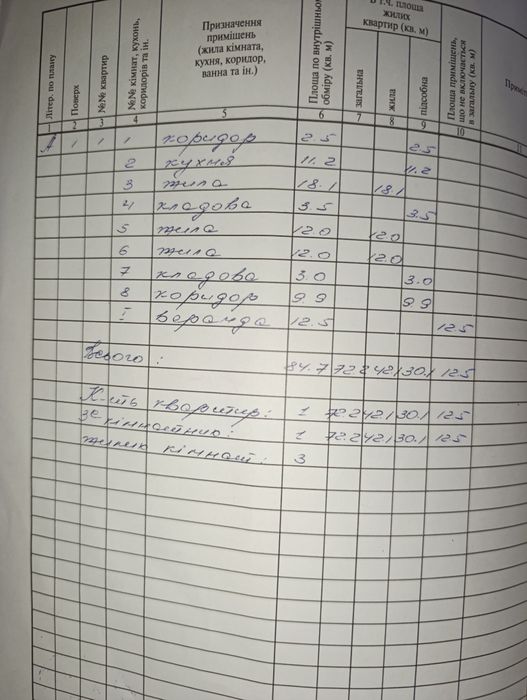 Літер. по плану
Поверх
№№ квартир
№№ кімнат, кухонь, коридорів та ін.
Призначення приміщень (жила кімната, кухня, коридор, ванна та ін.)
Площа по внутрішньому обміру (кв. м)
В т.ч. площа жилих квартир (кв. м)
загальна
жила
підсобна
Площа приміщень, що не включається в загальну (кв. м)
1 2 3 4 5 6 7 8 9 10 11
А 1 1 1 коридор 2.5 2.5
2 кухня 11.2 11.2
3 жила 18.1 18.1
4 кладова 3.5 3.5
5 жила 12.0 12.0
6 жила 12.0 12.0
7 кладова 3.0 3.0
8 коридор 9.9 9.9
I веранда 12.5 12.5
Всього: 84.7 72.2 42.1 30.1 12.5
К-ть квартир: 1 72.2 42.1 30.1 12.5
3х кімнатних: 1 72.2 42.1 30.1 12.5
жилих кімнат: 3